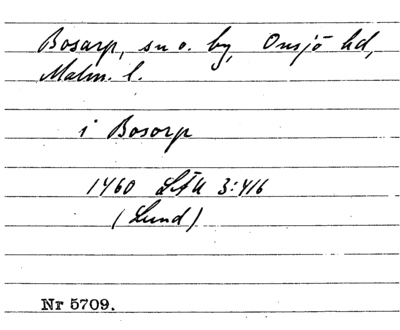 Bosarp, sn o. by, Onsjö hd,
Malm. l.
i Bosorp
1460 LÄU 3:416
(Lund)
Nr 5709.